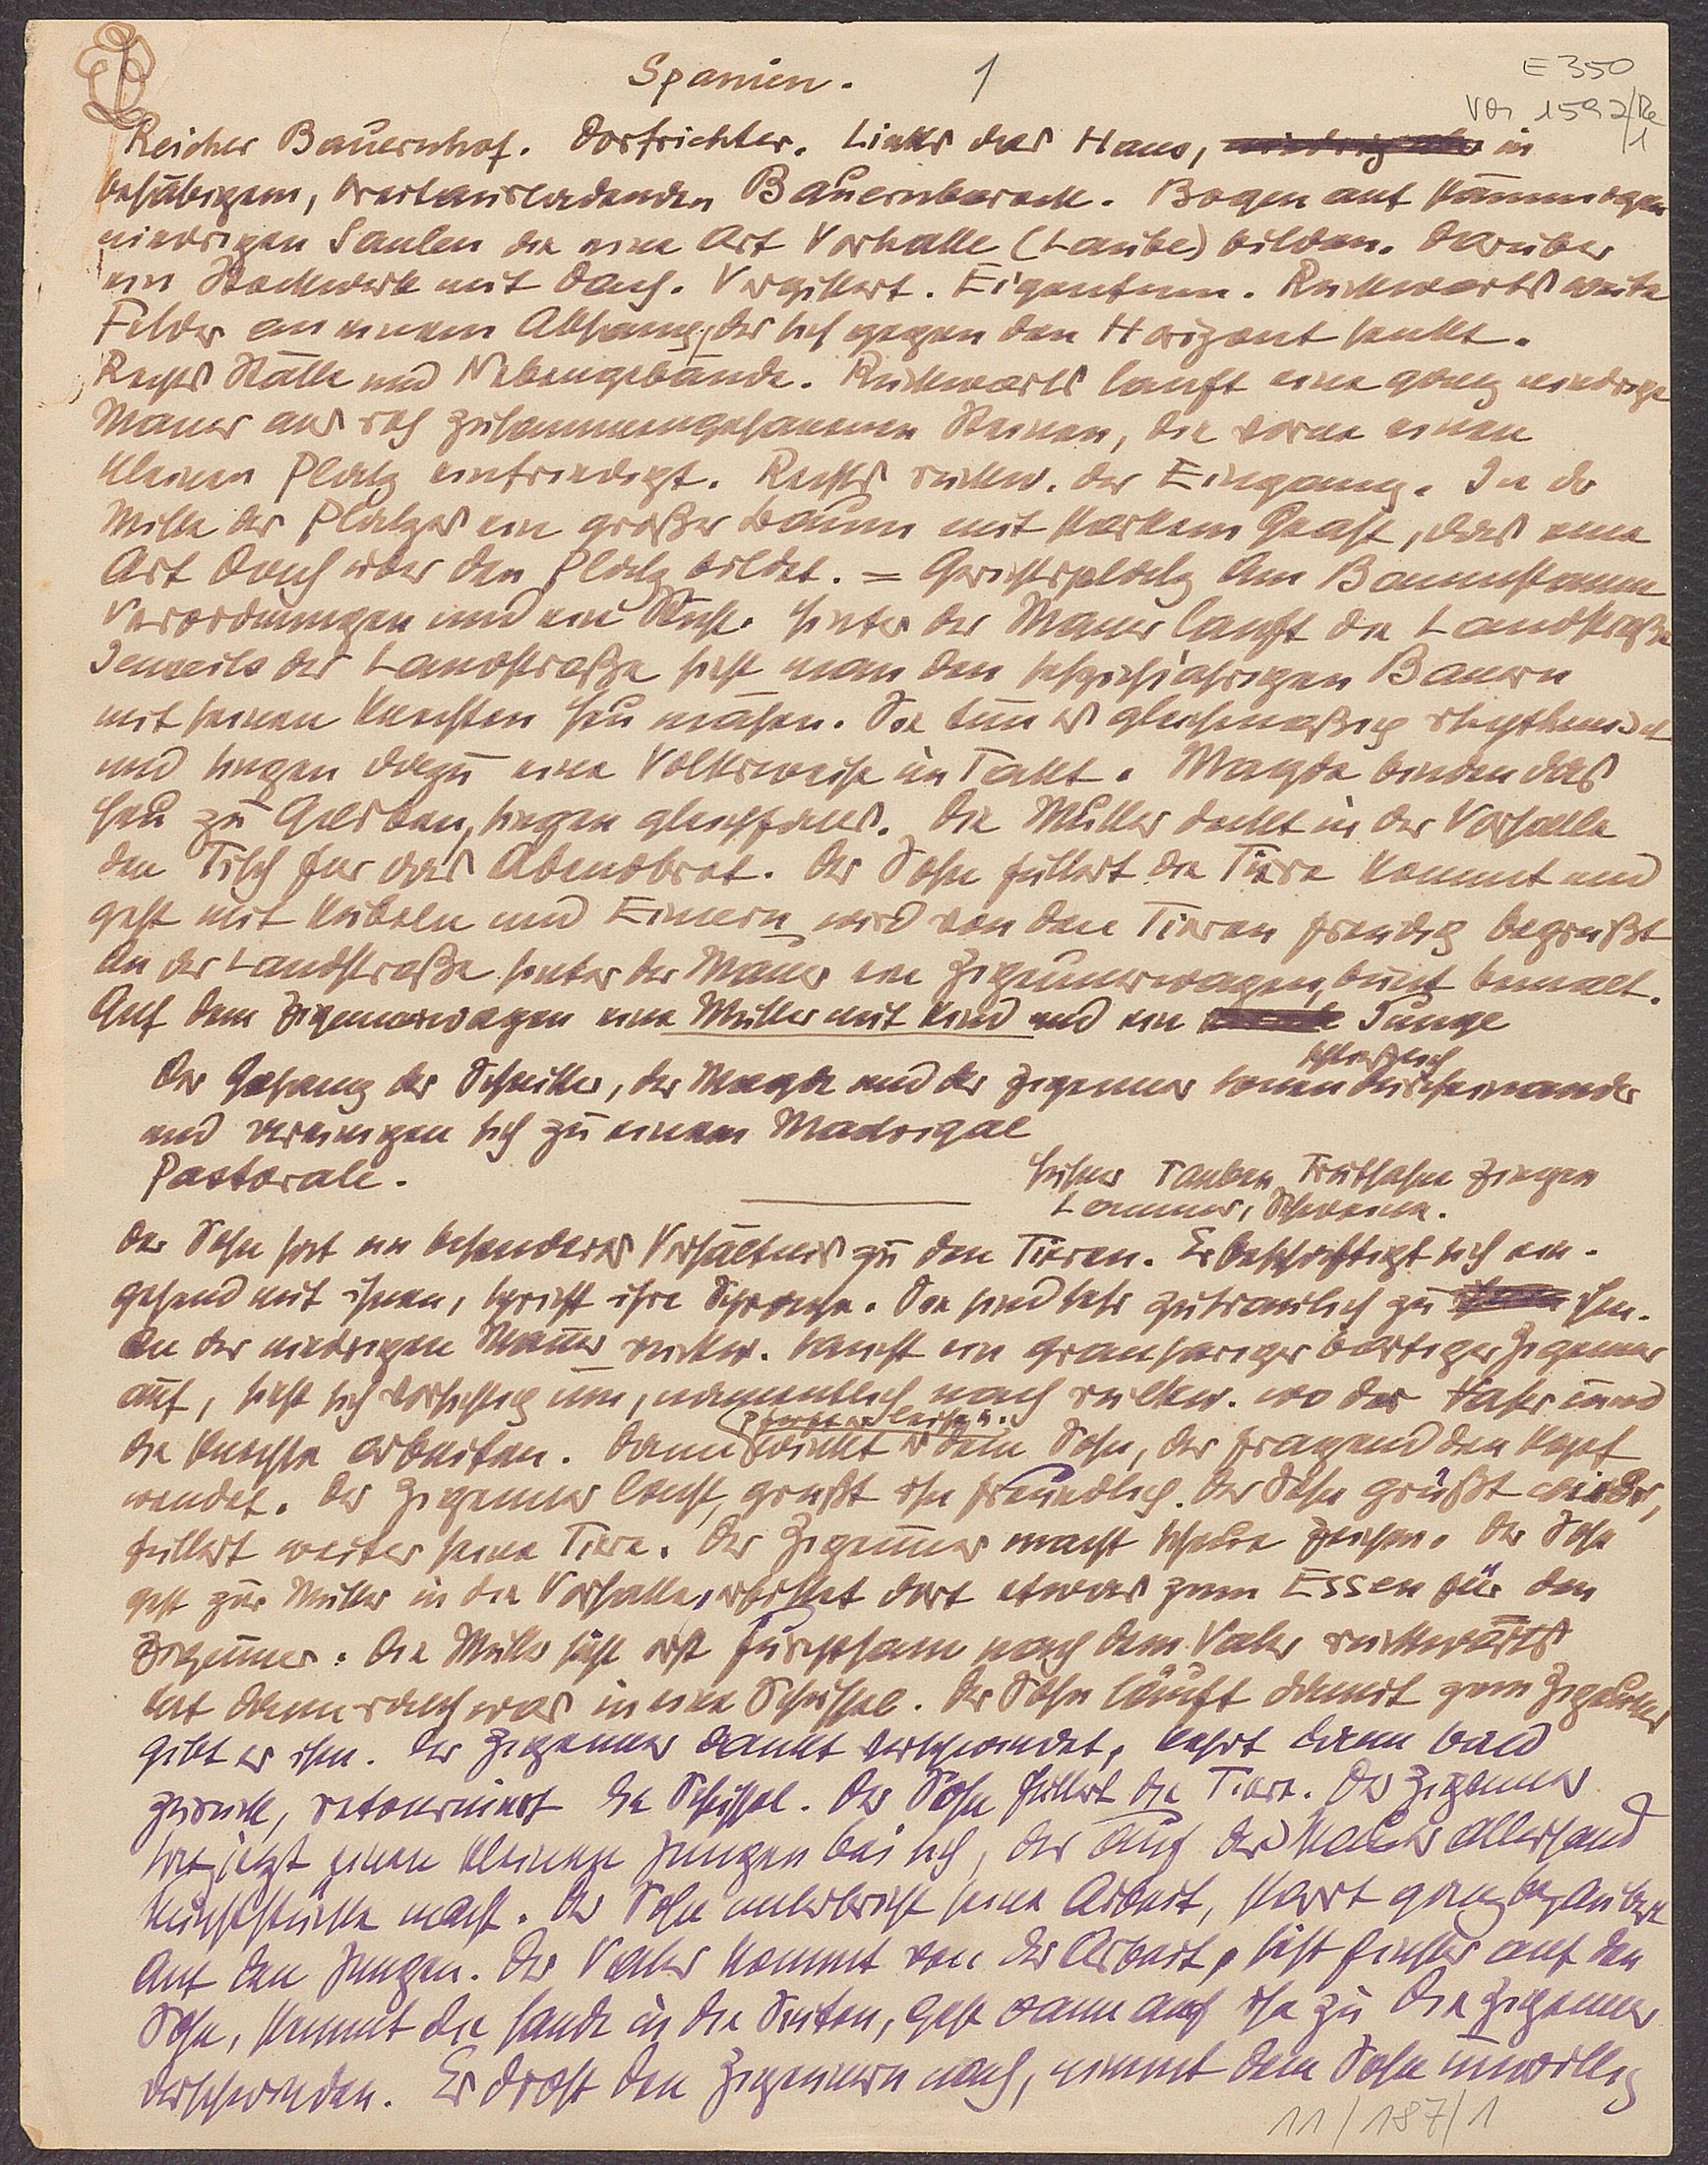 Spanien. 1
E 350
VM 1592/Re
/1
Reicher Bauernhof. Dorfrichter. Links das Haus, in
behäbigem, breitausladenden Bauernbarock. Bogen auf
niedrigen Säulen die eine Art Vorhalle (Laube) bilden. Darüber
ein Stockwerk mit Dach. Vergittert. Eigentum. Rückwärts weite
Felder an einem Abhang, der sich gegen den Horizont senkt.
Rechts Ställe und Nebengebäude. Rückwärts lauft eine ganz niedrige
Mauer aus roh zusammengehauenen Steinen, die vorne einen
kleinen Platz einfriedigt. Rechts rückw. der Eingang. In der
Mitte des Platzes ein großer Baum mit starkem Geäst, das eine
Art Dach über den Platz bildet. = Gerichtsplatz Am Baumstamm
Verordnungen und ein Hinter der Mauer lauft die Landstraße
Jenseits der Landstraße sieht man den sechzigjährigen Bauern
mit seinen Knechten Heu mähen. Sie tun es gleichmäßig rhythmisch
und singen dazu eine Volksweise im Takt. Mägde binden das
Heu zu Garben, singen gleichfalls. Die Mutter deckt in der Vorhalle
den Tisch für das Abendbrot. Der Sohn füttert die Tiere kommt und
geht mit Kübeln und Eimern wird von den Tieren freudig begrüßt
An der Landstraße hinter der Mauer ein Zigeunerwagen, bunt bemalt.
Auf dem Zigeunerwagen eine Mutter mit Kind und ein Junge
schließlich
Der Gesang der Schnitter, der Mägde und der Zigeuner tönen durcheinander
und vereinigen sich zu einem Madrigal
Pastorale.
Hühner Tauben Truthahn Ziegen
Lämmer, Schweine.
Der Sohn hat ein besonderes Verhältnis zu den Tieren. Er beschäftigt sich ein-
gehend mit ihnen, spricht ihre Sprache. Sie sind sehr zutraulich zu ihm.
An der niedrigen Mauer rückw. taucht ein grauhariger bärtiger Zigeuner
auf, sieht sich vorsichtig um, namentlich nach rückw. wo der Vater und
die Knechte arbeiten. Dann winkt er dem Sohn, der fragend den Kopf
pfeift er leise u.
wendet. Der Zigeuner lacht, grüßt ihn freundlich. Der Sohn grüßt wieder,
füttert weiter seine Tiere. Der Zigeuner macht scheue Zeichen. Der Sohn
geht zur Mutter in die Vorhalle, erbittet dort etwas zum Essen für den
Zigeuner. Die Mutter sieht erst furchtsam nach dem Vater rückwärts
tut dann rasch was in eine Schüssel. Der Sohn läuft damit zum Zigeuner
gibt es ihm. Der Zigeuner dankt verschwindet, kehrt dann bald
zurück, retourniert die Schüssel. Der Sohn füttert die Tiere. Der Zigeuner
hat jetzt einen kleinen Jungen bei sich, der auf der Mauer allerhand
Kunststücke macht. Der Sohn unterbricht seine Arbeit, starrt ganz bezaubert
auf den Jungen. Der Vater kommt von der Arbeit, sieht finster auf den
Sohn, stemmt die Hände in die Seiten, geht dann auf ihn zu Die Zigeuner
verschwinden. Er droht den Zigeunern nach, nimmt dem Sohn unwillig
11/187/1